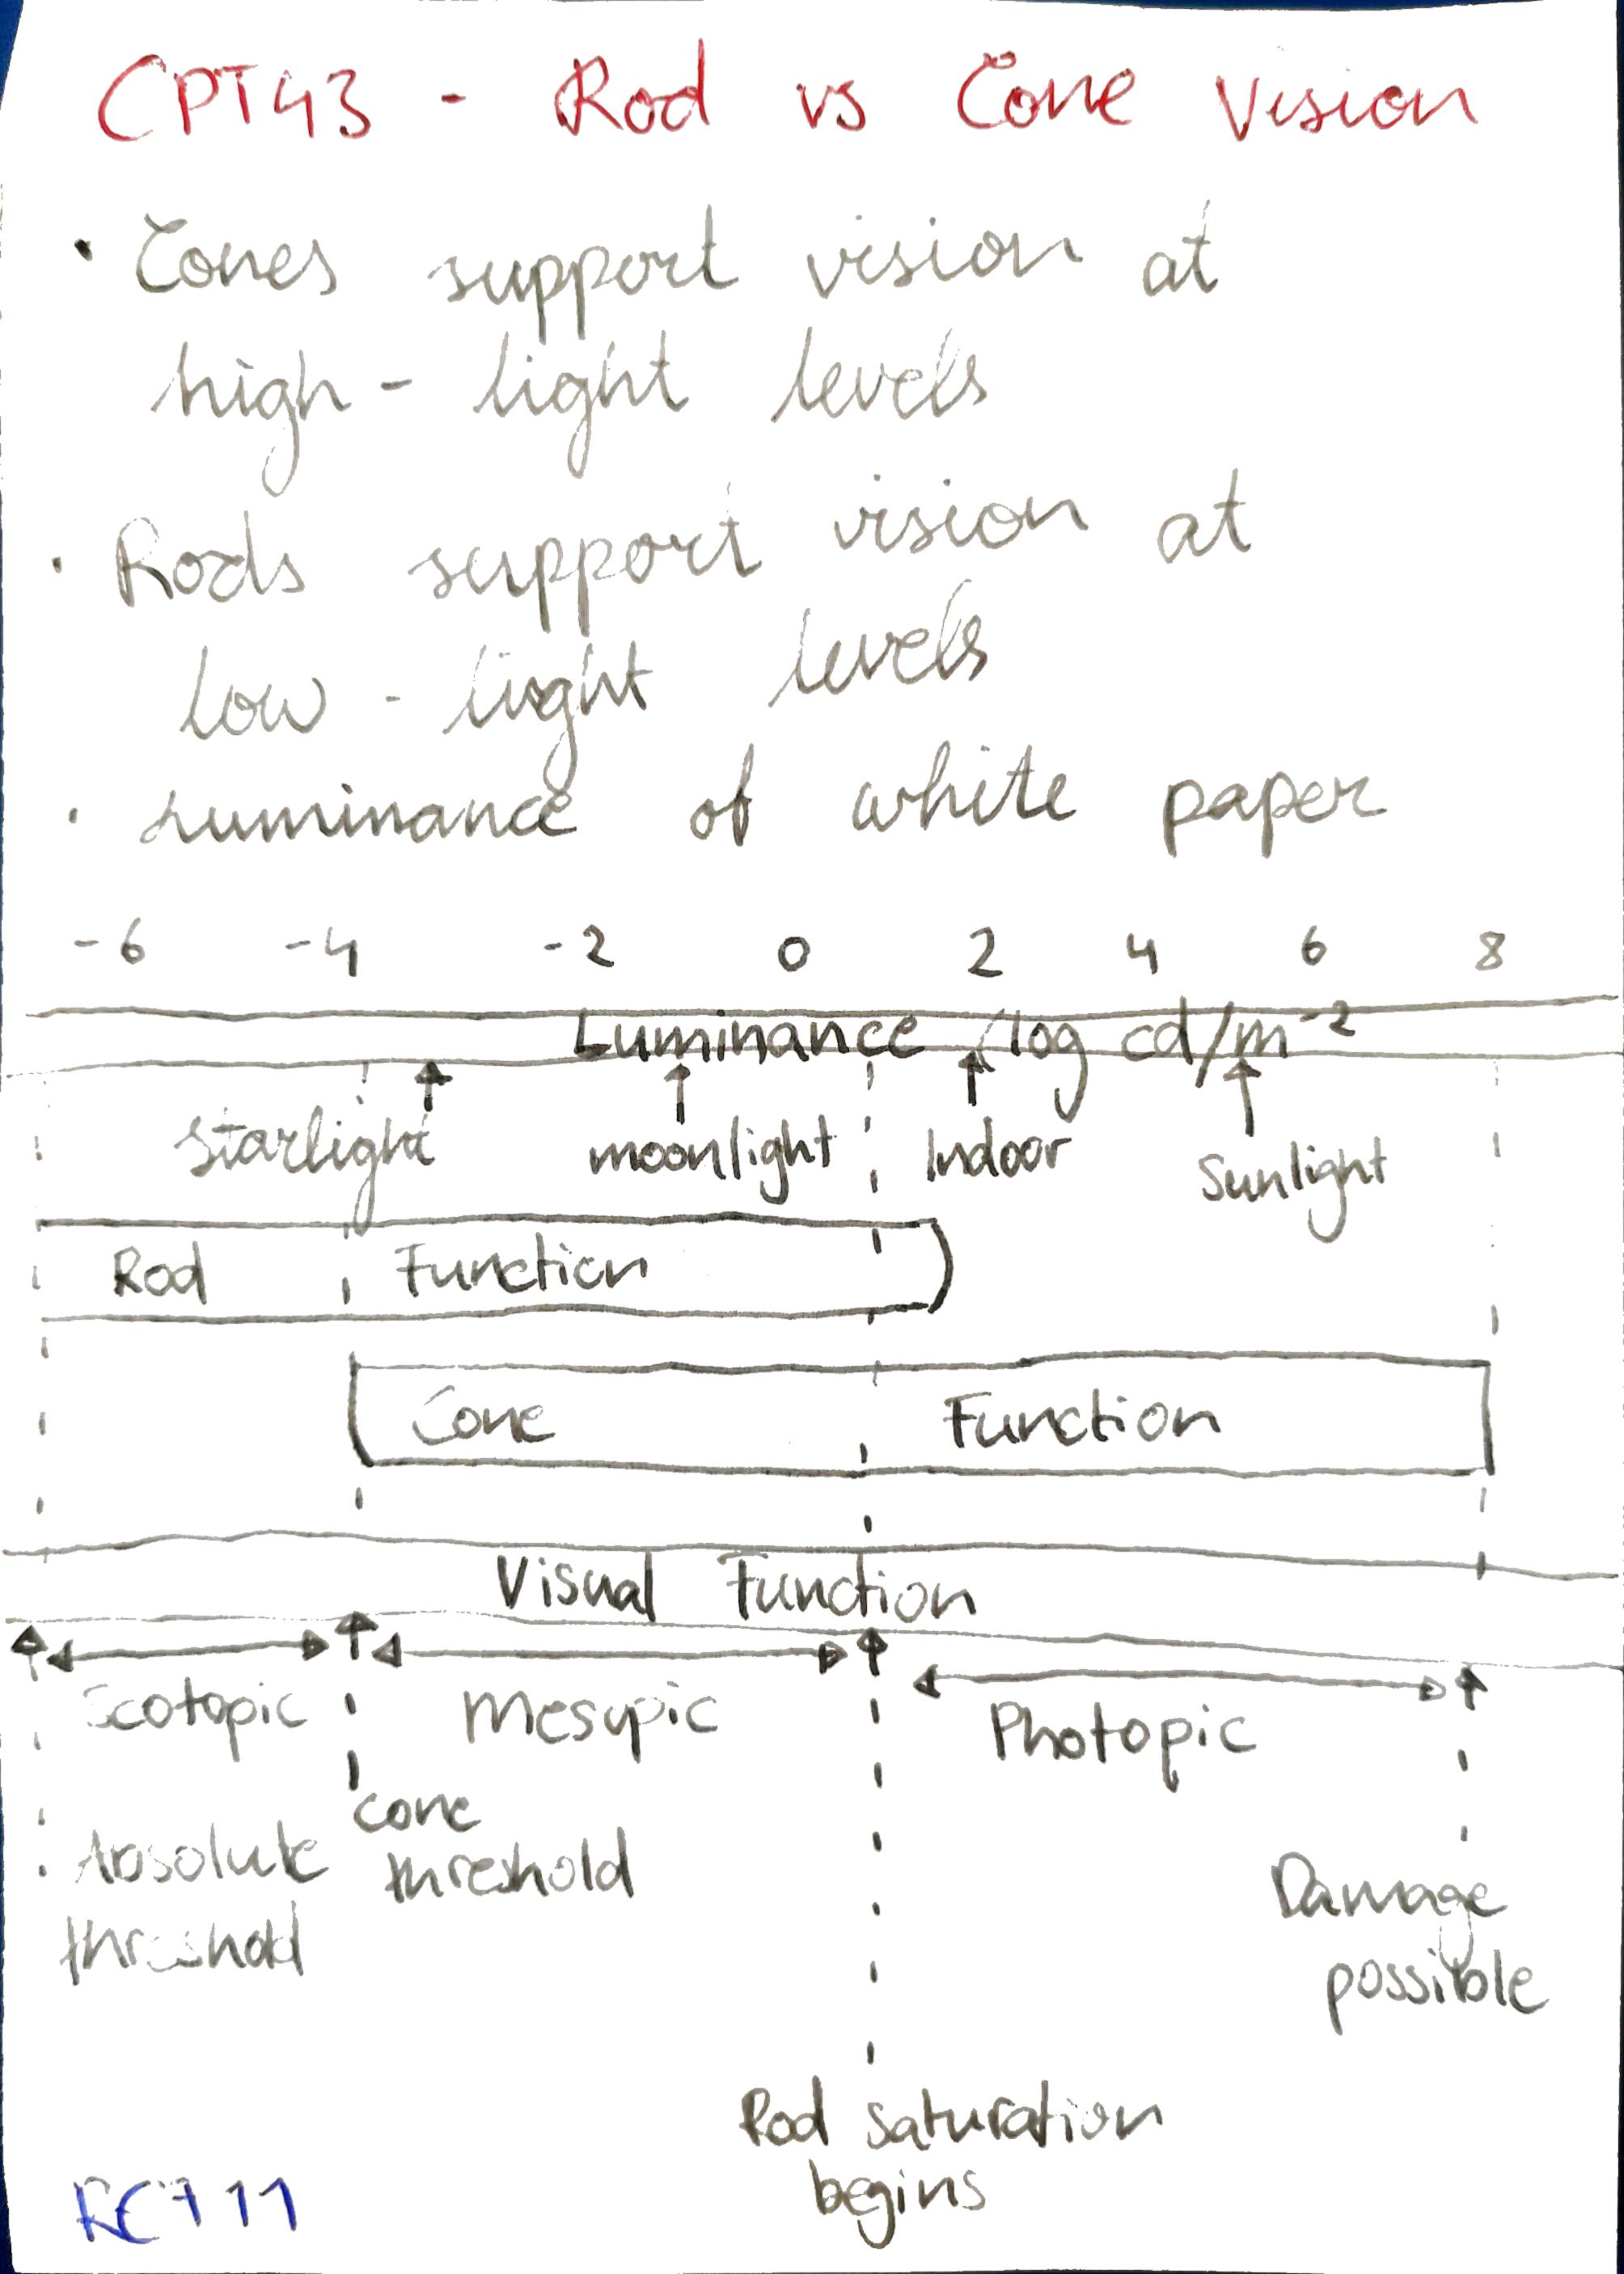 CPT43 - Rod vs Cone Vision
· Cones support vision at
high - light levels
· Rods support vision at
low - light levels
· Luminance of white paper
-6 -4 -2 0 2 4 6 8
Luminance /log cd/m⁻²
starlight moonlight Indoor Sunlight
Rod Function
Cone Function
Visual Function
Scotopic Mesopic Photopic
Absolute threshold
cone threshold
Damage possible
Rod saturation
begins